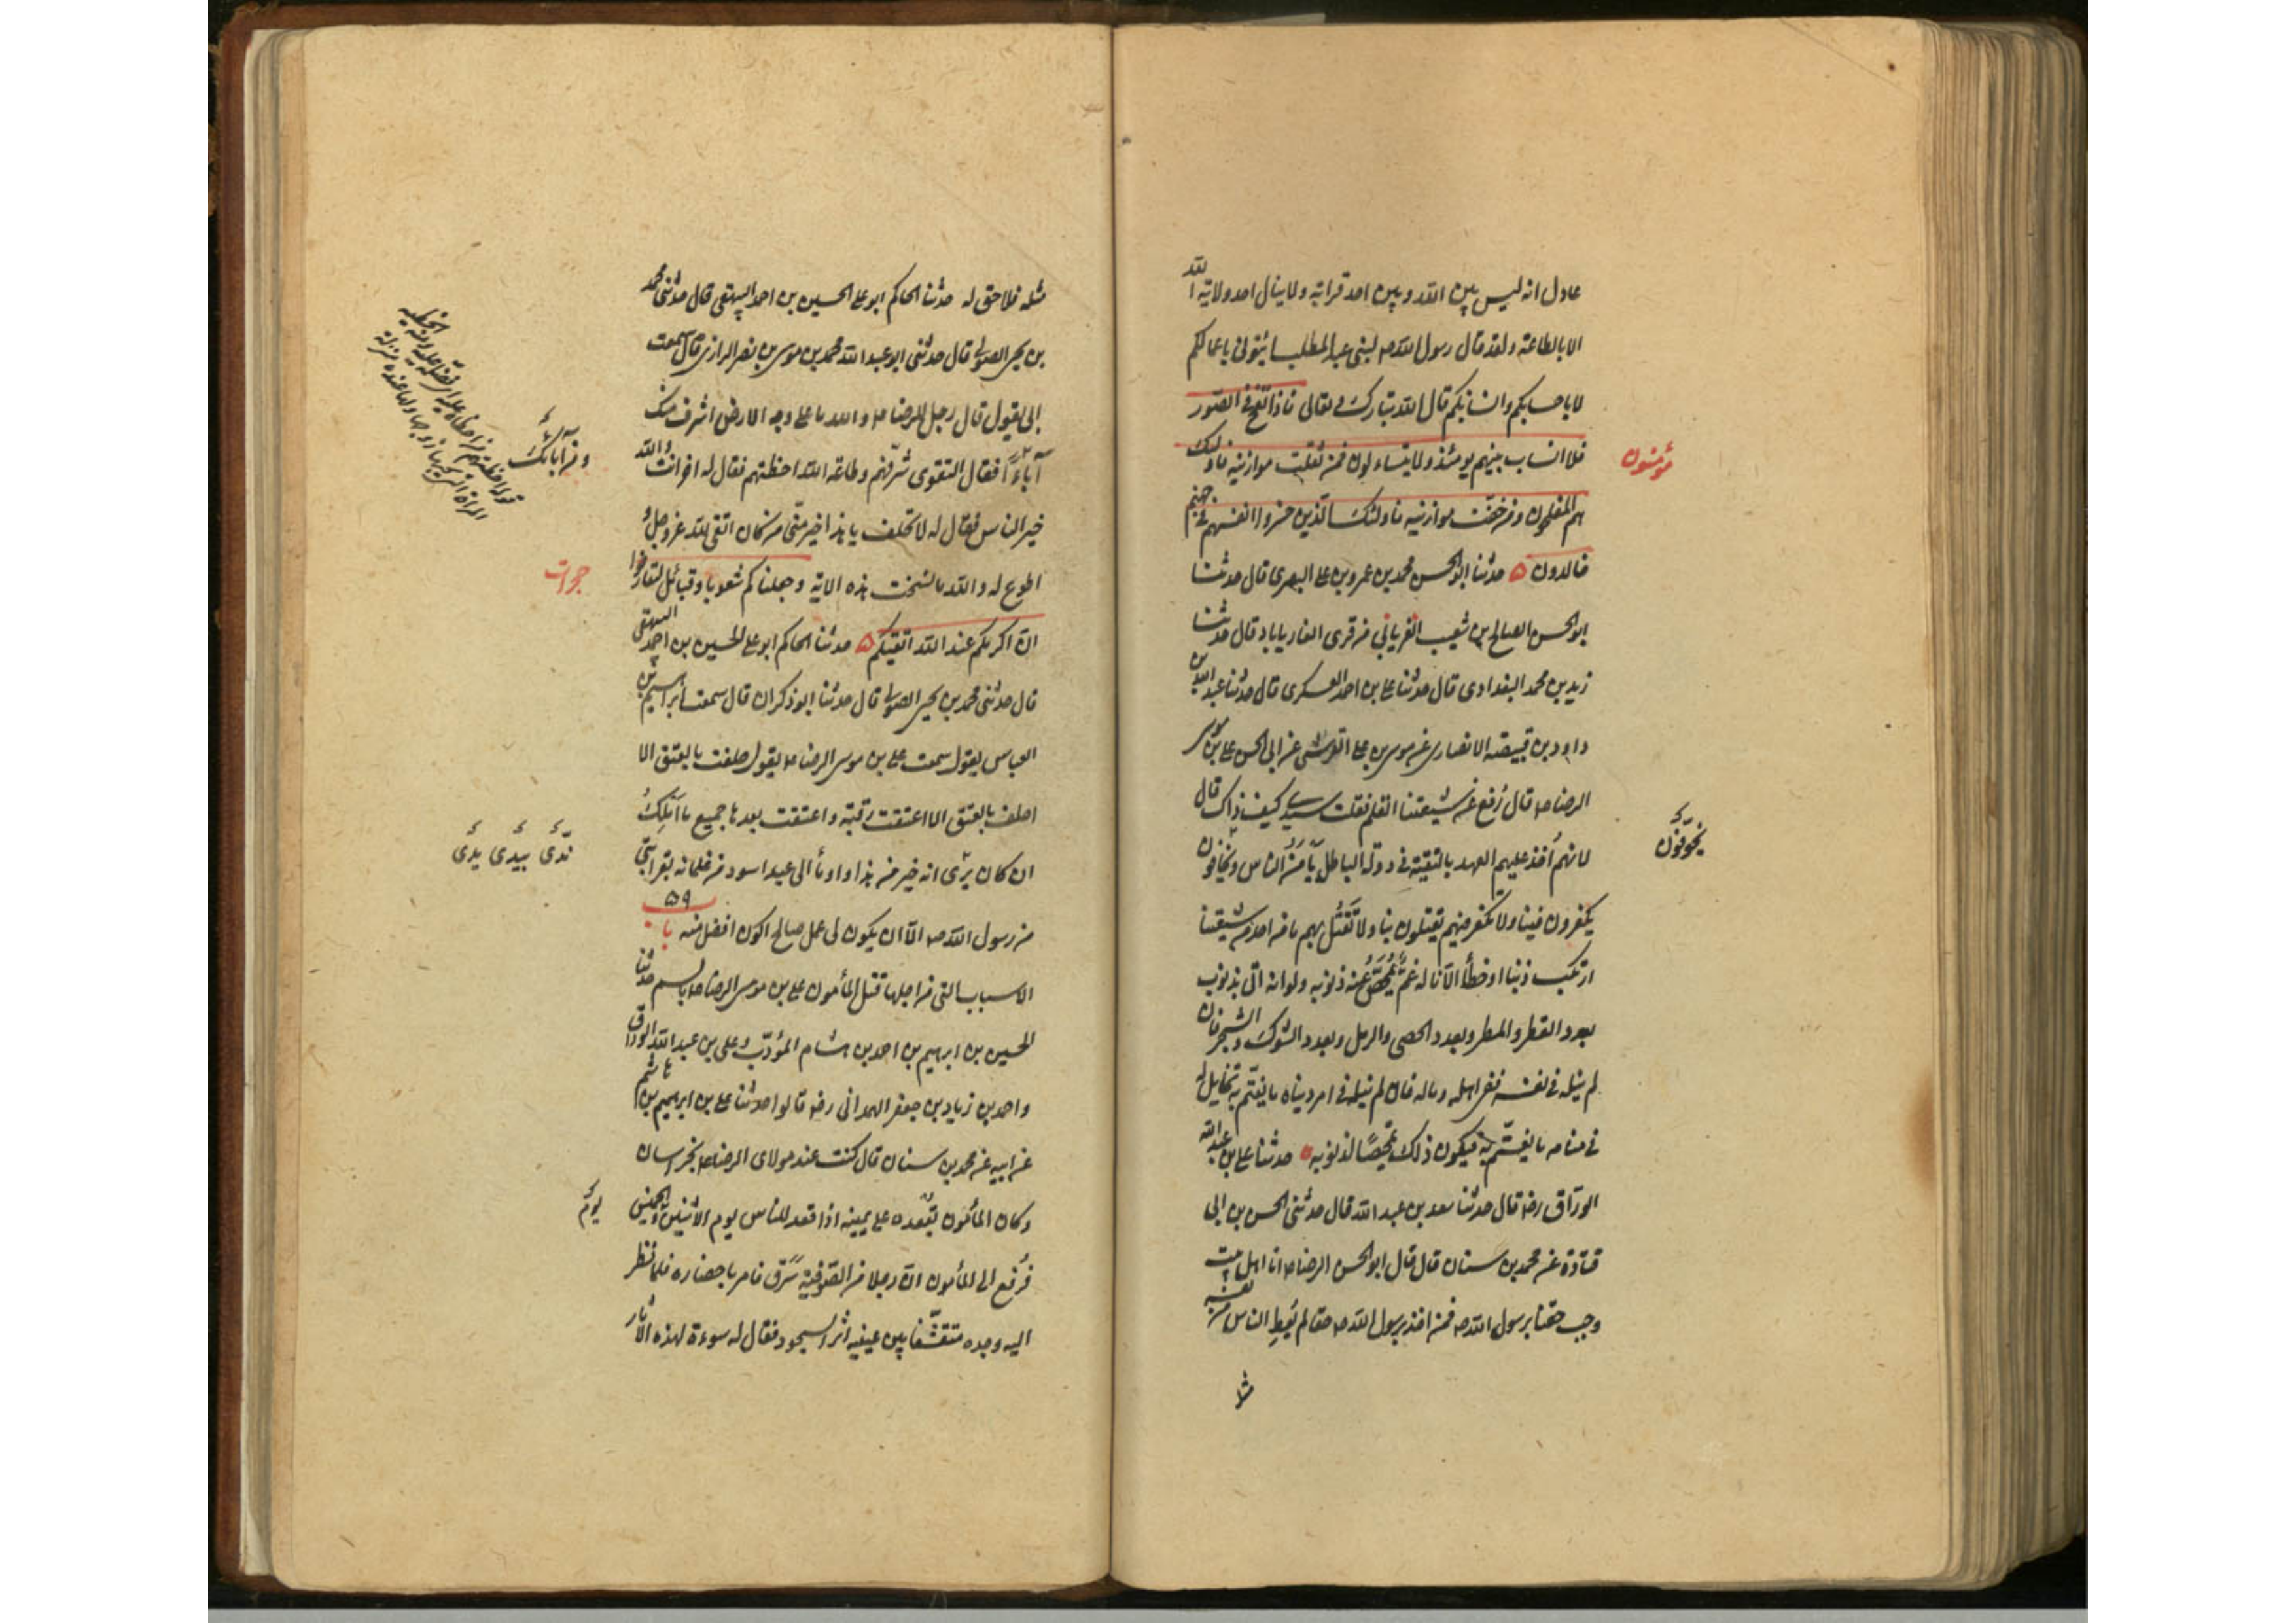 عادل انه ليس بين الله و بين احد قرابة ولا ينال احد ولاية الله
الا بالطاعة ولقد قال رسول الله ص لبنى عبد المطلب ايتونى باعمالكم
لا باحسابكم وانسابكم قال الله تبارك و تعالى فاذا نفخ فى الصور
فلا انساب بينهم يومئذ ولا يتساءلون فمن ثقلت موازينه فاولئك
هم المفلحون ومن خفت موازينه فاولئك الذين خسروا انفسهم فى جهنم
خالدون ۵ حدثنا ابو الحسن محمد بن عمرو بن على البصرى قال حدثنا
ابو الحسن الصالح بن شعيب الغريانى من قرى الفارياباد قال حدثنا
زيد بن محمد البغدادى قال حدثنا على بن احمد العسكرى قال حدثنا عبد الله بن
داود بن قبيصة الانصارى عن موسى بن على القرشى عن ابى الحسن على بن موسى
الرضا ع قال رُفع عن شيعتنا القلم فقلت يا سيدى كيف ذاك قال
لانهم اُخذ عليهم العهد بالتقية فى دولة الباطل يأمن الناس ويخافون
يكفرون فينا ولا نكفر فيهم يقتلون بنا ولا نَقتُل بهم ما من احد من شيعتنا
ارتكب ذنبا او خطأ الا ناله غمّ يُمحّص عنه ذنوبه ولو انه اتى بذنوب
بعدد القطر والمطر وبعدد الحصى والرمل وبعدد الشوك والشجر فان
لم ينله فى نفسه ففى اهله وماله فان لم ينله فى امر دنياه ما يغتمّ به تخايل له
فى منامه ما يغتمّ به فيكون ذلك تمحيصًا لذنوبه حدثنا على بن عبد الله
الورّاق رضه قال حدثنا سعد بن عبد الله قال حدثنى الحسن بن ابى
قتادة عن محمد بن سنان قال قال ابو الحسن الرضا ع انا اهل بيت
وجب حقنا برسول الله ص فمن اخذ برسول الله ص حقا لم يُعطِ الناس من نفسه
مؤمنون
يخوّفون
مثله فلا حق له حدثنا الحاكم ابو على الحسين بن احمد البيهقى قال حدثنى محمد
بن يحيى الصولى قال حدثنى ابو عبد الله محمد بن موسى بن نصر الرازى قال سمعت
ابى يقول قال رجل للرضا ع والله ما على وجه الارض اشرف منك
آباءً فقال التقوى شرّفتهم وطاعة الله احظتهم فقال له اخر انت والله
خير الناس فقال له لا تحلف يا هذا خير منّى من كان اتقى لله عز وجل و
اطوع له والله ما نسخت هذه الاية وجعلناكم شعوبا وقبائل لتعارفوا
ان اكرمكم عند الله اتقيكم ۵ حدثنا الحاكم ابو على الحسين بن احمد البيهقى
قال حدثنى محمد بن يحيى الصولى قال حدثنا ابو ذكران قال سمعت ابراهيم بن
العباس يقول سمعت على بن موسى الرضا ع يقول حلفت بالعتق الا
احلف بالعتق الا اعتقت رقبة واعتقت بعدها جميع ما اَملِكُ
ان كان يرى انه خير من هذا واومأ الى عبد اسود من غلمانه بقرابتى
من رسول الله ص الّا ان يكون لى عمل صالح اكون افضل منه باب ۵۹
الاسباب التى من اجلها قتل المأمون على بن موسى الرضا ع بالسم حدثنا
الحسين بن ابرهيم بن احمد بن هشام المؤدّب و على بن عبد الله الورّاق
واحمد بن زياد بن جعفر الهمدانى رضه قالوا حدثنا على بن ابرهيم بن هاشم
عن ابيه عن محمد بن سنان قال كنت عند مولاى الرضا ع بخراسان
وكان المأمون يُقعده على يمينه اذا قعد للناس يوم الاثنين والخميس
فرُفع الى المأمون ان رجلا من الصوفية سَرَق فامر باحضاره فلما نظر
اليه وجده متقشّفا بين عينيه اثر السجود فقال له سوءة لهذه الآثار
ومن آبائك
حجرات
يوم